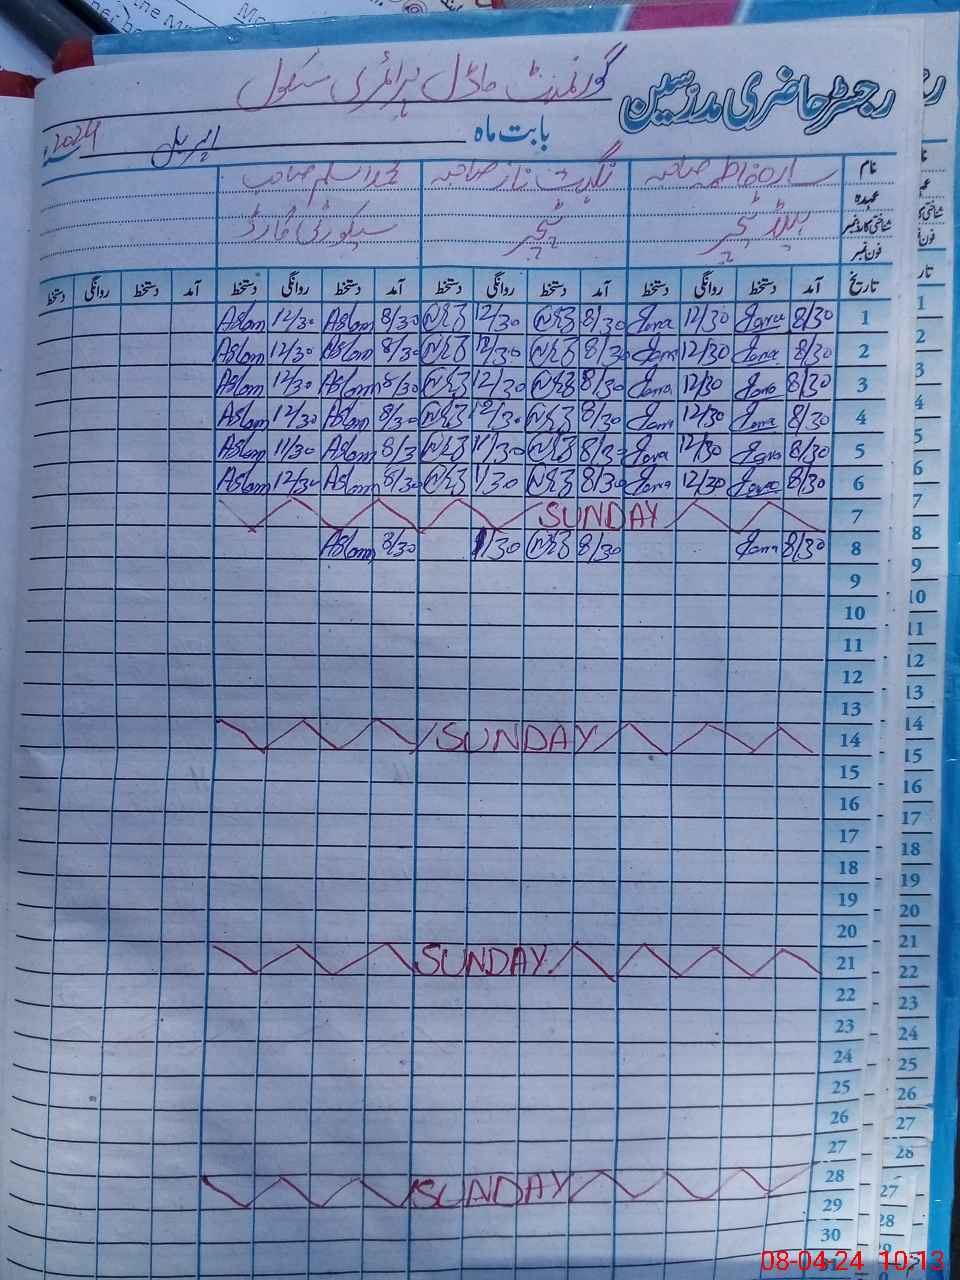 رجسٹر حاضری مدرسین گورنمنٹ ماڈل پرائمری سکول
بابت ماہ اپریل 2024ء
نام سارہ فاطمہ صاحبہ نگہت ناز صاحبہ محمد اسلم صاحب
عہدہ ہیڈ ٹیچر ٹیچر سیکورٹی گارڈ
شناختی کارڈ نمبر
فون نمبر
تاریخ آمد دستخط روانگی دستخط آمد دستخط روانگی دستخط آمد دستخط روانگی دستخط آمد دستخط روانگی دستخط
1 8/30 12/30 8/30 12/30 8/30 Aslam 12/30 Aslam
2 8/30 12/30 8/30 12/30 8/30 Aslam 12/30 Aslam
3 8/30 12/30 8/30 12/30 8/30 Aslam 12/30 Aslam
4 8/30 12/30 8/30 12/30 8/30 Aslam 12/30 Aslam
5 8/30 12/30 8/30 11/30 8/30 Aslam 11/30 Aslam
6 8/30 12/30 8/30 8/30 Aslam 12/30 Aslam
7 SUNDAY
8 8/30 8/30 8/30 Aslam
9
10
11
12
13
14 SUNDAY
15
16
17
18
19
20
21 SUNDAY
22
23
24
25
26
27
28 SUNDAY
29
30
08-04-24 10:13